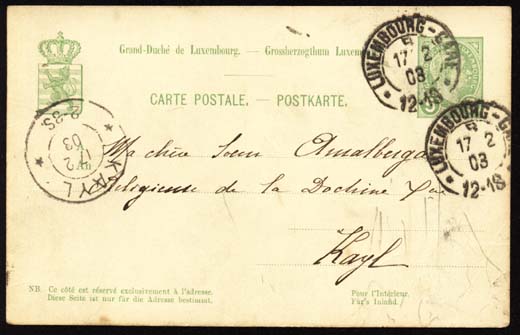 Grand-Duché de Luxembourg. – Grossherzogthum Luxem
CARTE POSTALE. – POSTKARTE.
LUXEMBOURG-GARE
17 2
03
12-1S
LUXEMBOURG-GARE
17 2
03
12-1S
KAYL
17 2
03
2-3S
An
Ma chère Sœur Amalberga
Religieuse de la Doctrine
Kayl
NB. Ce côté est réservé exclusivement à l'adresse.
Diese Seite ist nur für die Adresse bestimmt.
Pour l'Intérieur.
Für's Inland.